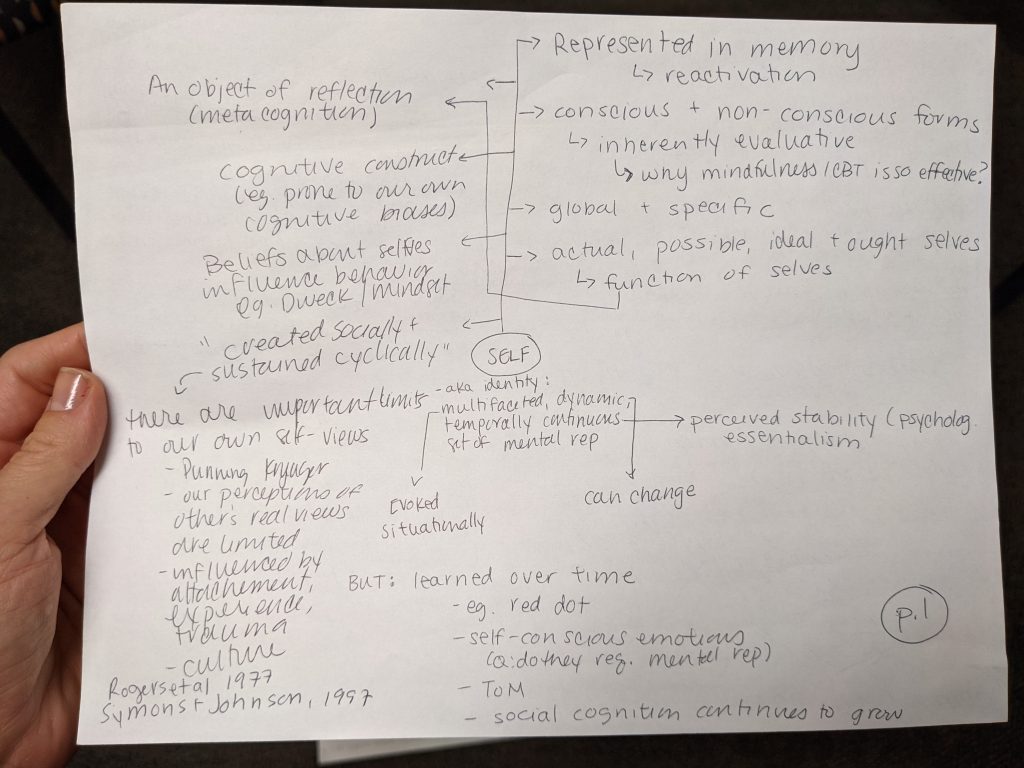 Represented in memory
↳ reactivation
conscious + non-conscious forms
↳ inherently evaluative
↳ why mindfulness/CBT is so effective?
global + specific
actual, possible, ideal + ought selves
↳ function of selves
An object of reflection
(metacognition)
cognitive construct
(eg. prone to our own
cognitive biases)
Beliefs about selfies
influence behavior
eg. Dweck/mindset
"created socially +
sustained cyclically"
SELF
- aka identity:
multifaceted, dynamic
temporally continuous
set of mental rep
perceived stability (psycholog.
essentialism
can change
Evoked
situationally
there are important limits
to our own self-views
- Dunning Kruger
- our perceptions of
other's real views
are limited
- influenced by
attachement,
experience,
trauma
- culture
Rogers et al 1977
Symons + Johnson, 1997
BUT: learned over time
- eg. red dot
- self-conscious emotions
(Q: do they req. mental rep)
- ToM
- social cognition continues to grow
p.1